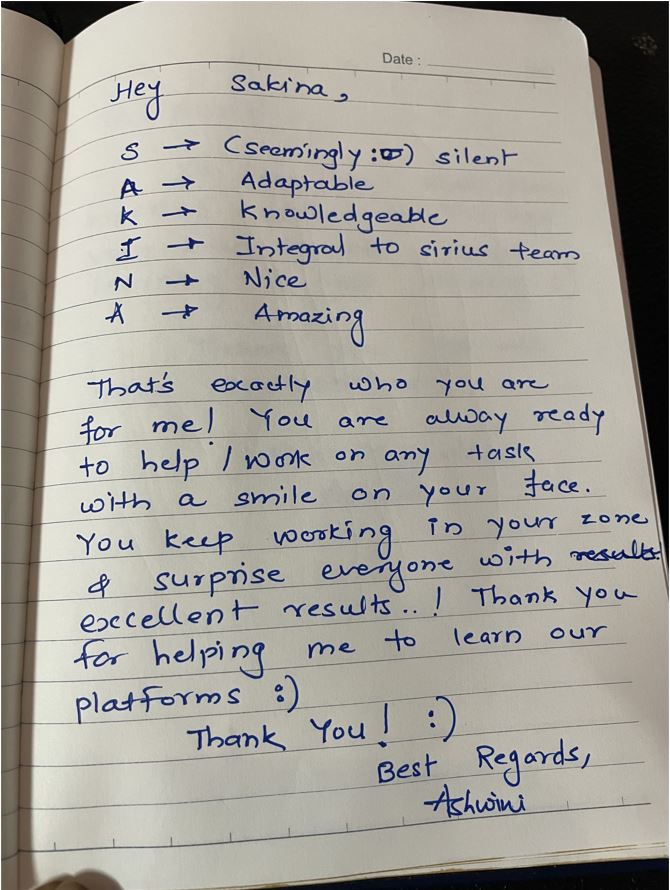 Date :
Hey Sakina,
S → (seemingly :) silent
A → Adaptable
K → Knowledgeable
I → Integral to sirius team
N → Nice
A → Amazing
That's exactly who you are
for me! You are alway ready
to help / work on any task
with a smile on your face.
You keep working in your zone
& surprise everyone with results
excellent results..! Thank you
for helping me to learn our
platforms :)
Thank You! :)
Best Regards,
Ashwini